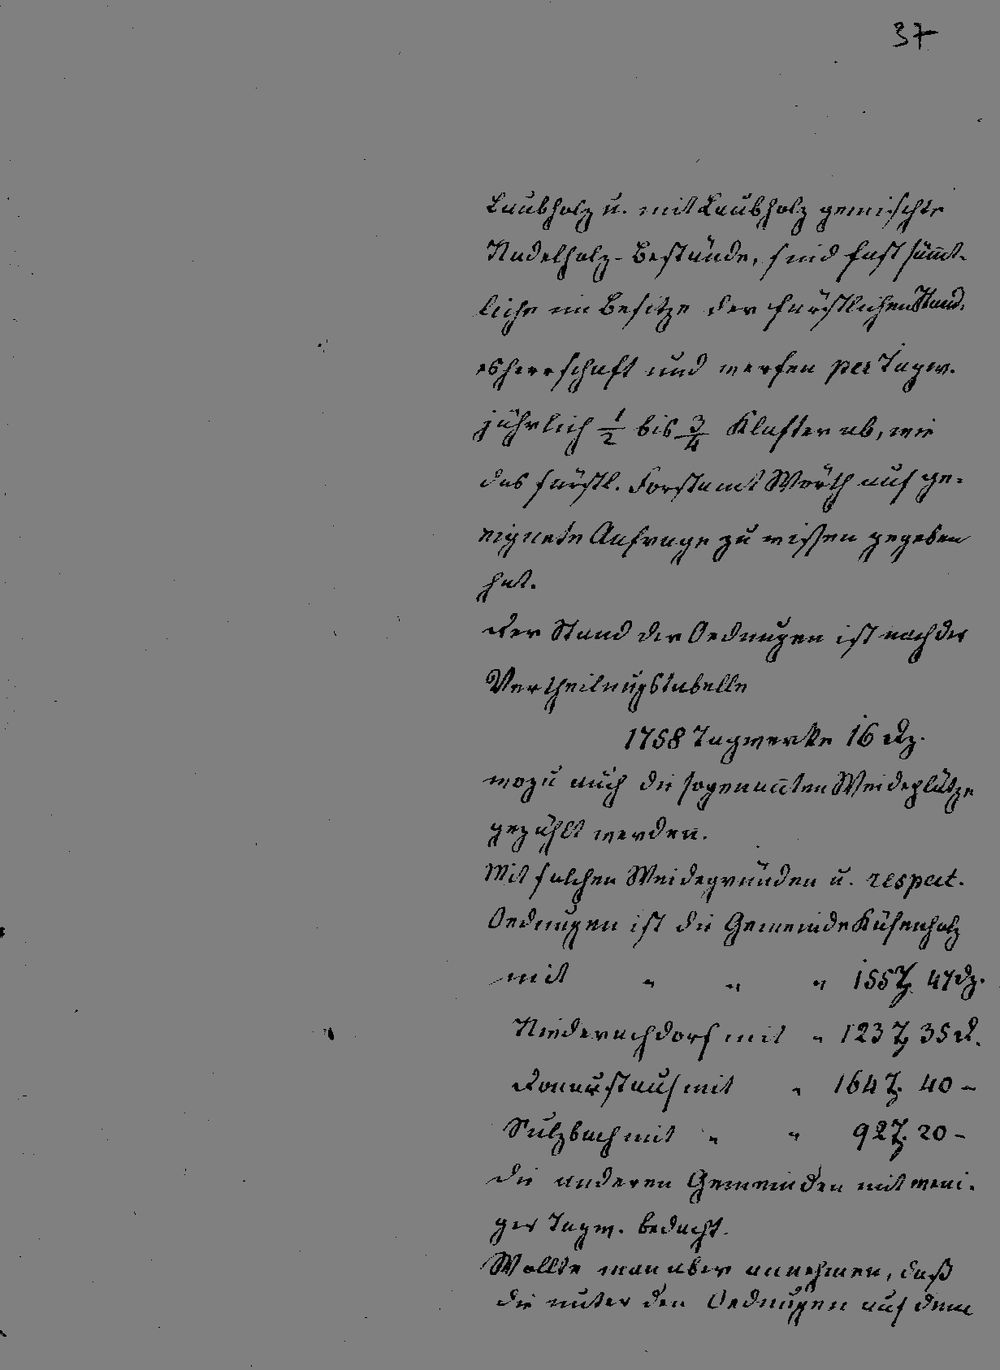 37
Laubholz u. mit Laubholz gemischte
Nadelholz-Bestände, sind fast sämt-
liche im Besitze der fürstlichen Stand-
esherrschaft und werfen per Tagw.
jährlich 1/2 bis 3/4 Klafter ab, wie
das fürstl. Forstamt Wörth auf ge-
eignete Anfrage zu wissen gegeben
hat.
Der Stand der Oednungen ist nach der
Vertheilungstabelle
1758 Tagwerke 16 Dz.
wozu auch die sogenannten Weideplätze
gezählt werden.
Mit solchen Weidegründen u. respect.
Oednungen ist die Gemeinde Küfenholz
mit " " " 155 T. 47 Dz.
Niederachdorf mit " 123 T. 35 D.
Donaustauf mit " 164 T. 40 –
Sulzbach mit " " 92 T. 20 –
die anderen Gemeinden mit weni-
ger Tagw. bedacht.
Wollte man aber annehmen, daß
die unter den Oednungen auf dem